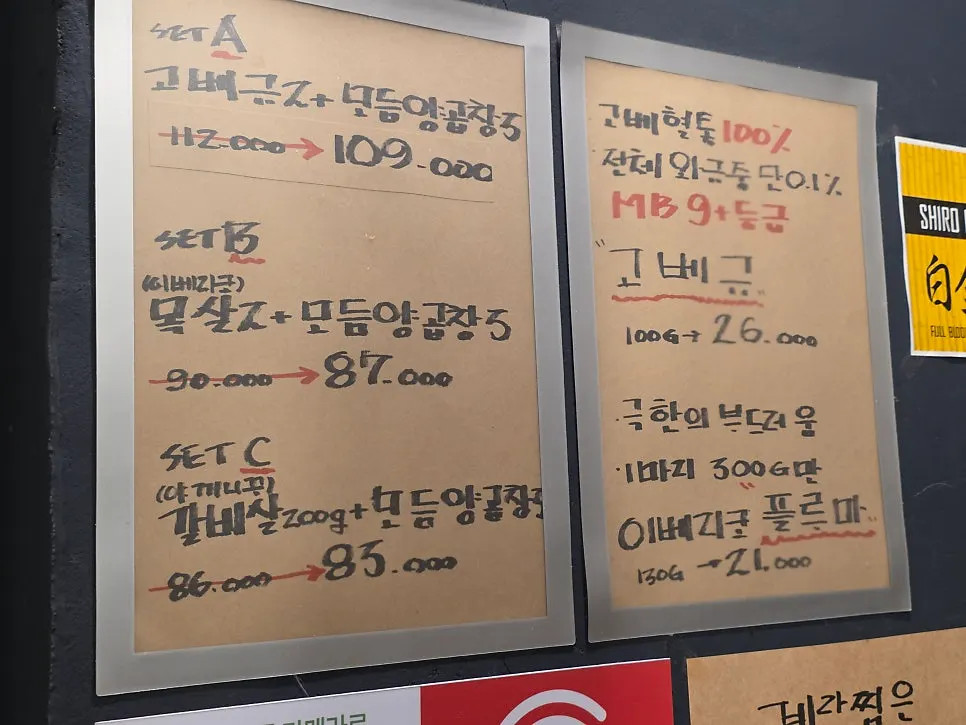 SET A
고베규2+모듬양곱창3
112.000→109.000
SET B
(이베리코)
목살2+모듬양곱창3
90.000→87.000
SET C
(야끼니꾸)
갈비살200g+모듬양곱창3
86.000→83.000
고베혈통100%
전체 와규중 단0.1%
MB9+등급
"고베규"
100G→26.000
·극한의 부드러움
·1마리 300G만
이베리코 "플루마"
130G→21.000
SHIRO
白
FULL BLOO